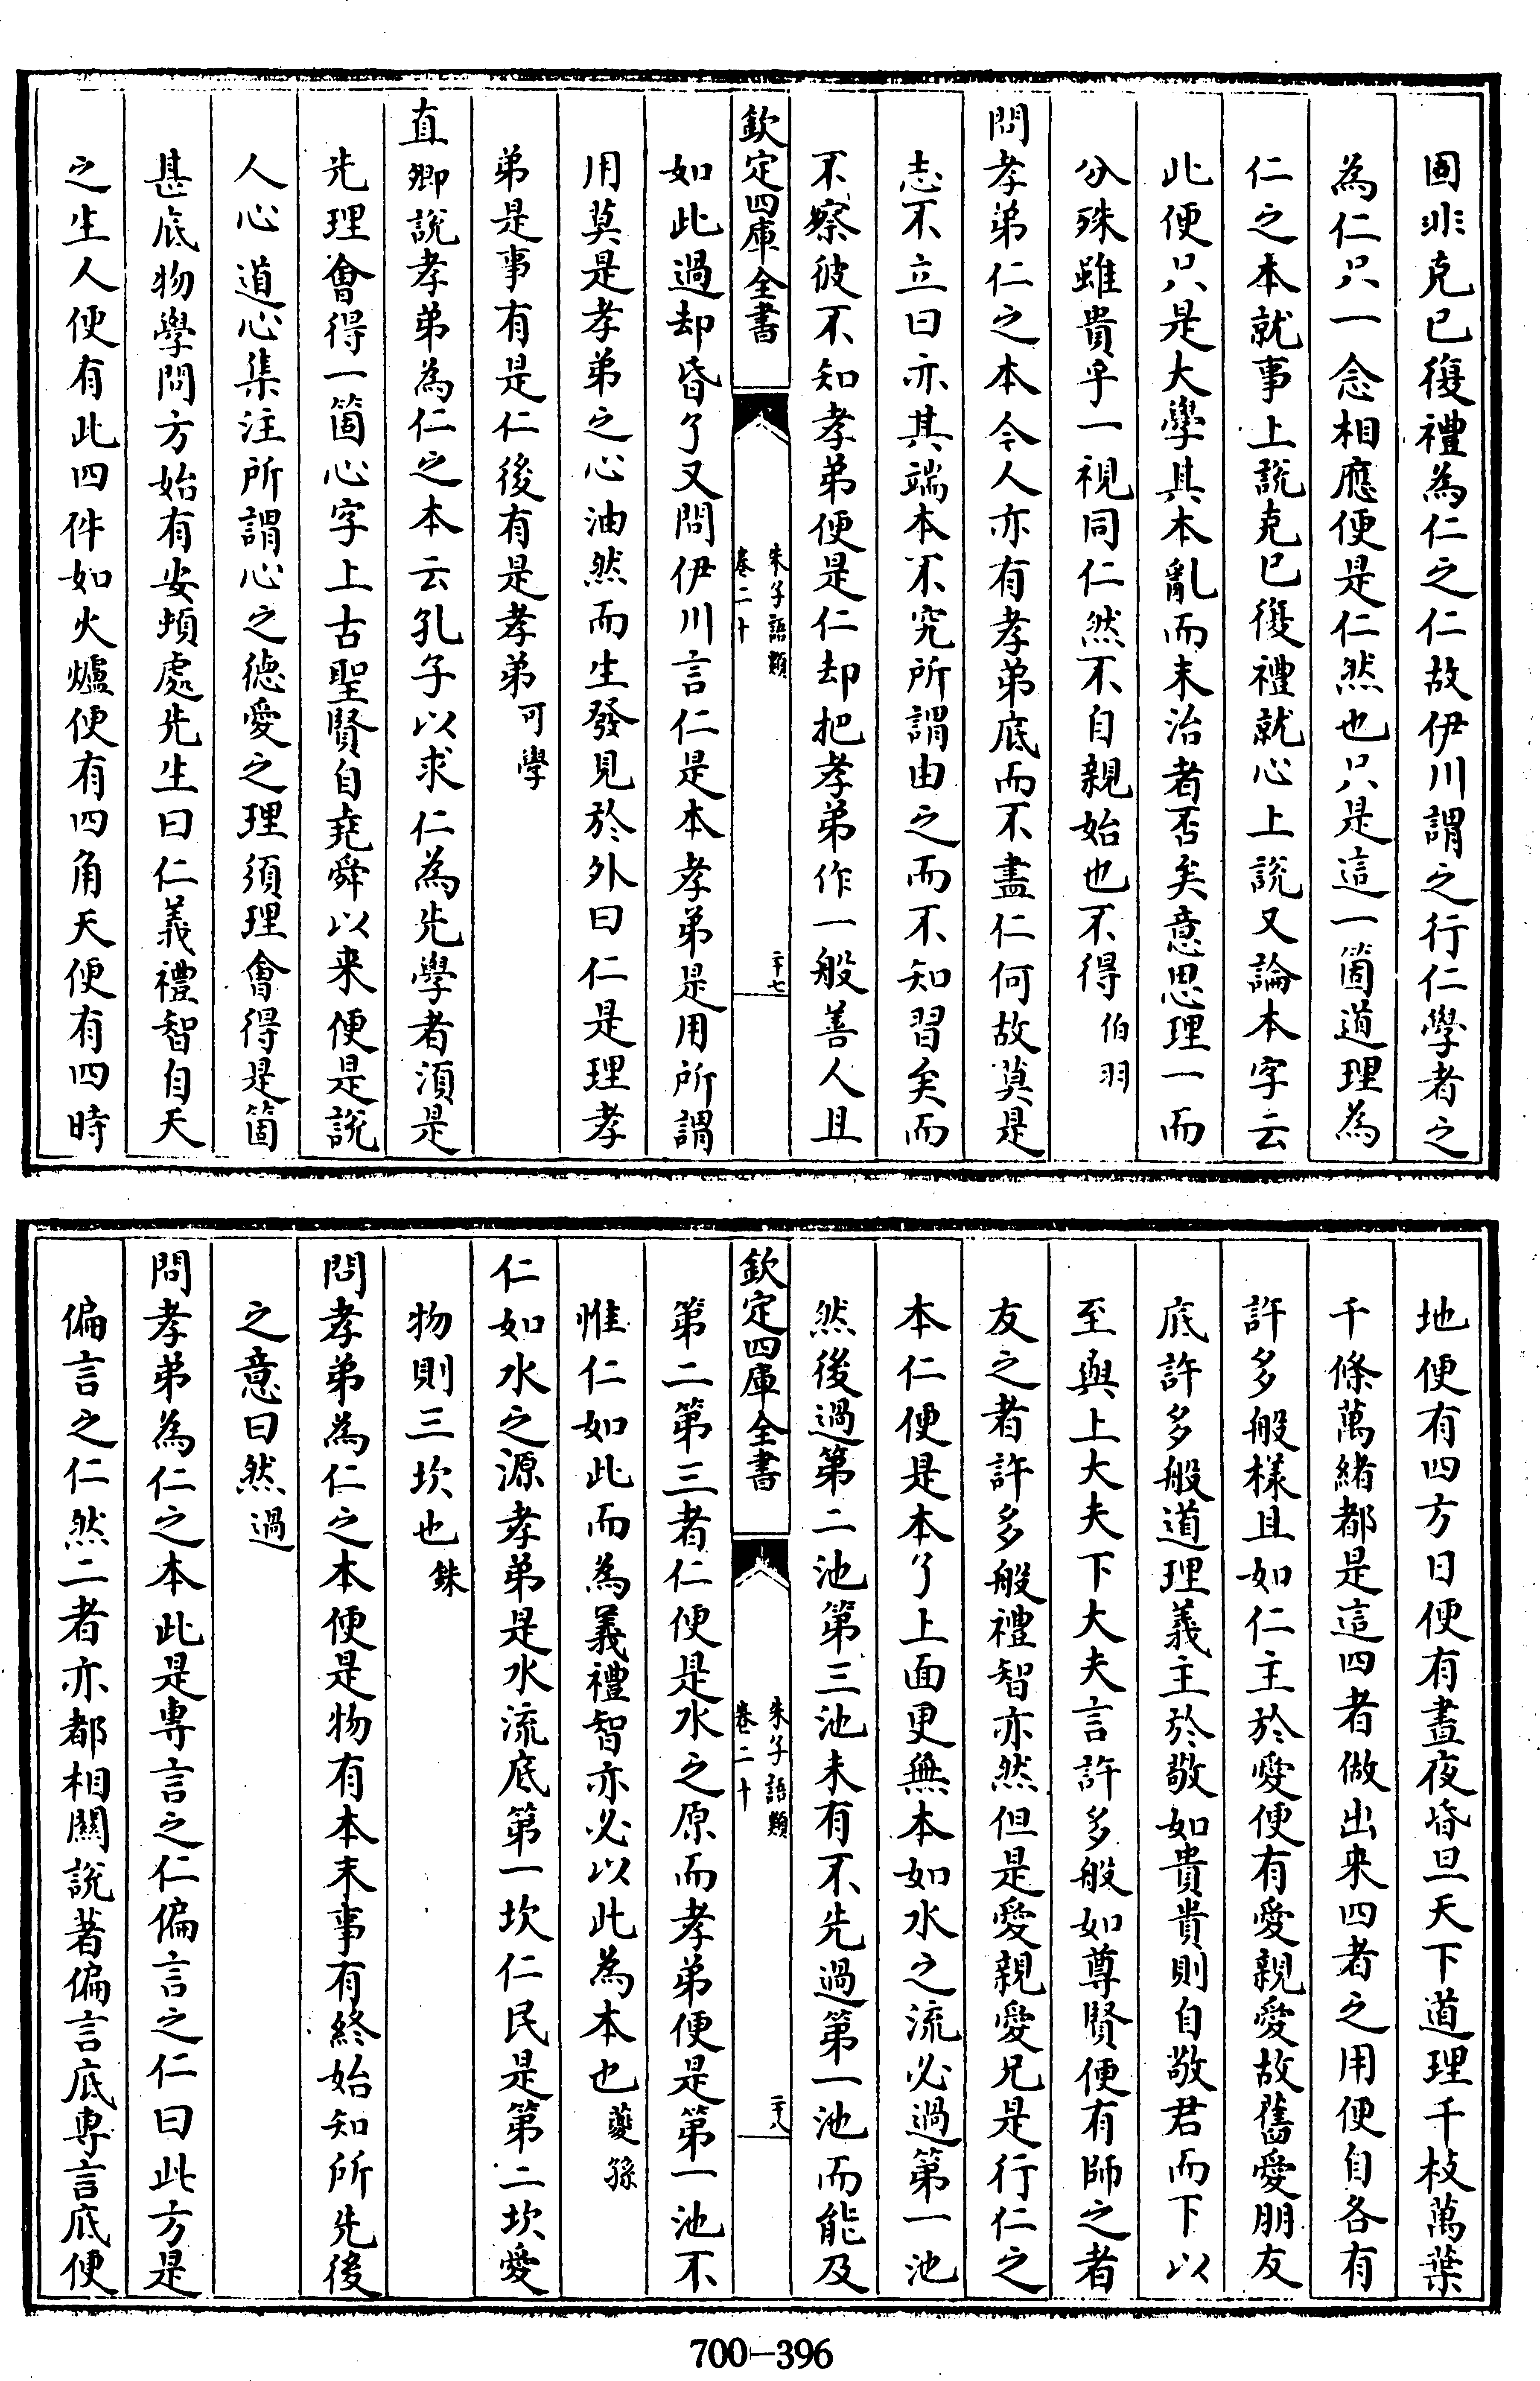 固非克已復禮為仁之仁故伊川謂之行仁學者之
為仁只一念相應便是仁然也只是這一箇道理為
仁之本就事上說克已復禮就心上說又論本字云
此便只是大學其本亂而末治者否矣意思理一而
分殊雖貴乎一視同仁然不自親始也不得伯羽
問孝弟仁之本今人亦有孝弟底而不盡仁何故莫是
志不立曰亦其端本不究所謂由之而不知習矣而
不察彼不知孝弟便是仁却把孝弟作一般善人且
欽定四庫全書
朱子語類
卷二十
二十七
如此過却昏了又問伊川言仁是本孝弟是用所謂
用莫是孝弟之心油然而生發見於外曰仁是理孝
弟是事有是仁後有是孝弟可學
直卿說孝弟為仁之本云孔子以求仁為先學者須是
先理會得一箇心字上古聖賢自堯舜以来便是說
人心道心集注所謂心之德愛之理須理會得是箇
甚底物學問方始有安頓處先生曰仁義禮智自天
之生人便有此四件如火爐便有四角天便有四時
地便有四方日便有晝夜昏旦天下道理千枝萬葉
千條萬緒都是這四者做出来四者之用便自各有
許多般樣且如仁主於愛便有愛親愛故舊愛朋友
底許多般道理義主於敬如貴貴則自敬君而下以
至與上大夫下大夫言許多般如尊賢便有師之者
友之者許多般禮智亦然但是愛親愛兄是行仁之
本仁便是本了上面更無本如水之流必過第一池
然後過第二池第三池未有不先過第一池而能及
欽定四庫全書
朱子語類
卷二十
二十八
第二第三者仁便是水之原而孝弟便是第一池不
惟仁如此而為義禮智亦必以此為本也夔孫
仁如水之源孝弟是水流底第一坎仁民是第二坎愛
物則三坎也銖
問孝弟為仁之本便是物有本末事有終始知所先後
之意曰然過
問孝弟為仁之本此是專言之仁偏言之仁曰此方是
偏言之仁然二者亦都相關說著偏言底專言底便
700-396